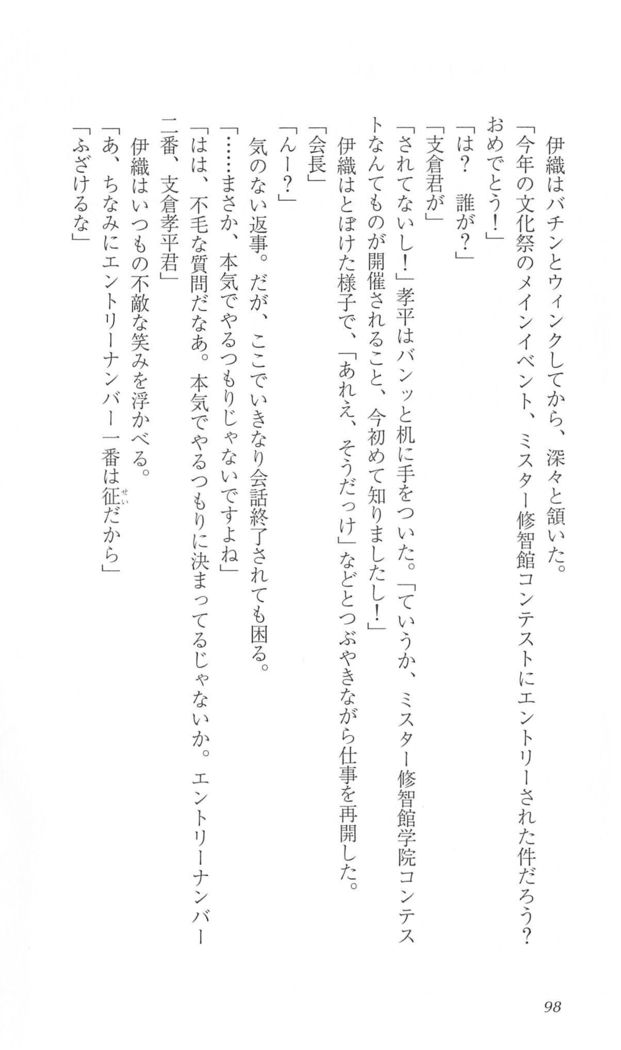 伊織はバチンとウィンクしてから、深々と頷いた。
「今年の文化祭のメインイベント、ミスター修智館コンテストにエントリーされた件だろう?
おめでとう!」
「は? 誰が?」
「支倉君が」
「されてないし!」孝平はバンッと机に手をついた。「ていうか、ミスター修智館学院コンテス
トなんてものが開催されること、今初めて知りましたし!」
伊織はとぼけた様子で、「あれえ、そうだっけ」などとつぶやきながら仕事を再開した。
「会長」
「んー?」
気のない返事。だが、ここでいきなり会話終了されても困る。
「……まさか、本気でやるつもりじゃないですよね」
「はは、不毛な質問だなあ。本気でやるつもりに決まってるじゃないか。エントリーナンバー
二番、支倉孝平君」
伊織はいつもの不敵な笑みを浮かべる。
「あ、ちなみにエントリーナンバー一番は征せいだから」
「ふざけるな」
98